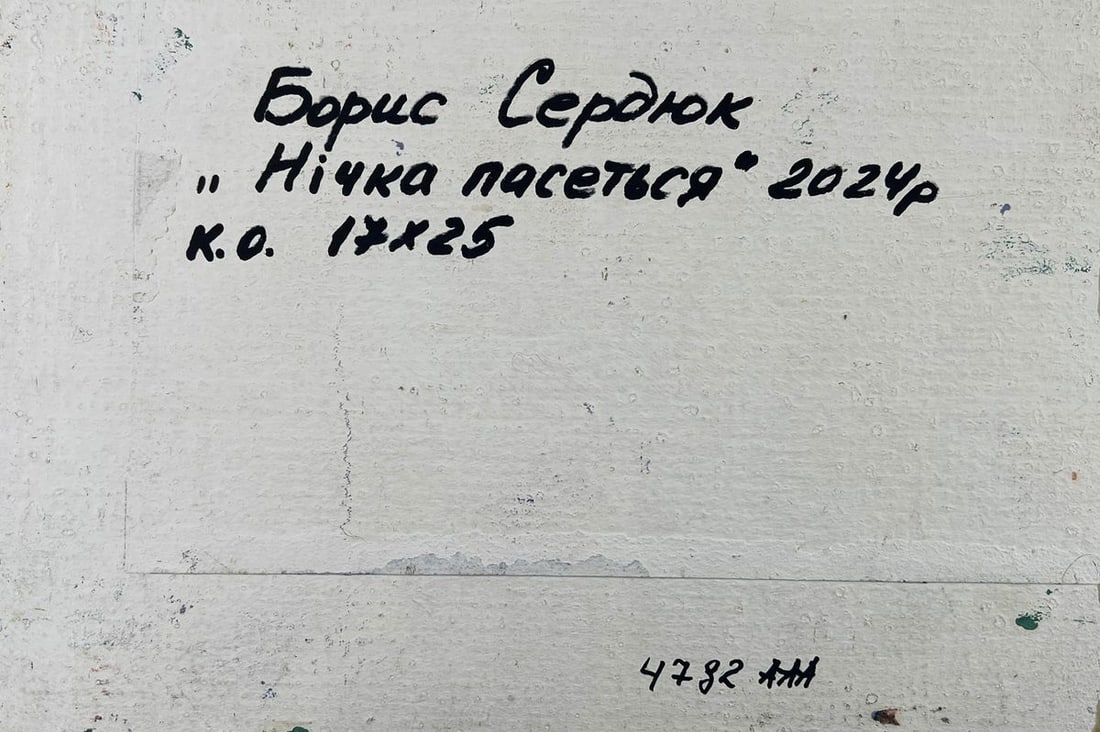 Борис Сердюк
„Нічка пасеться" 2024р
к.о. 17х25
4792 ААА